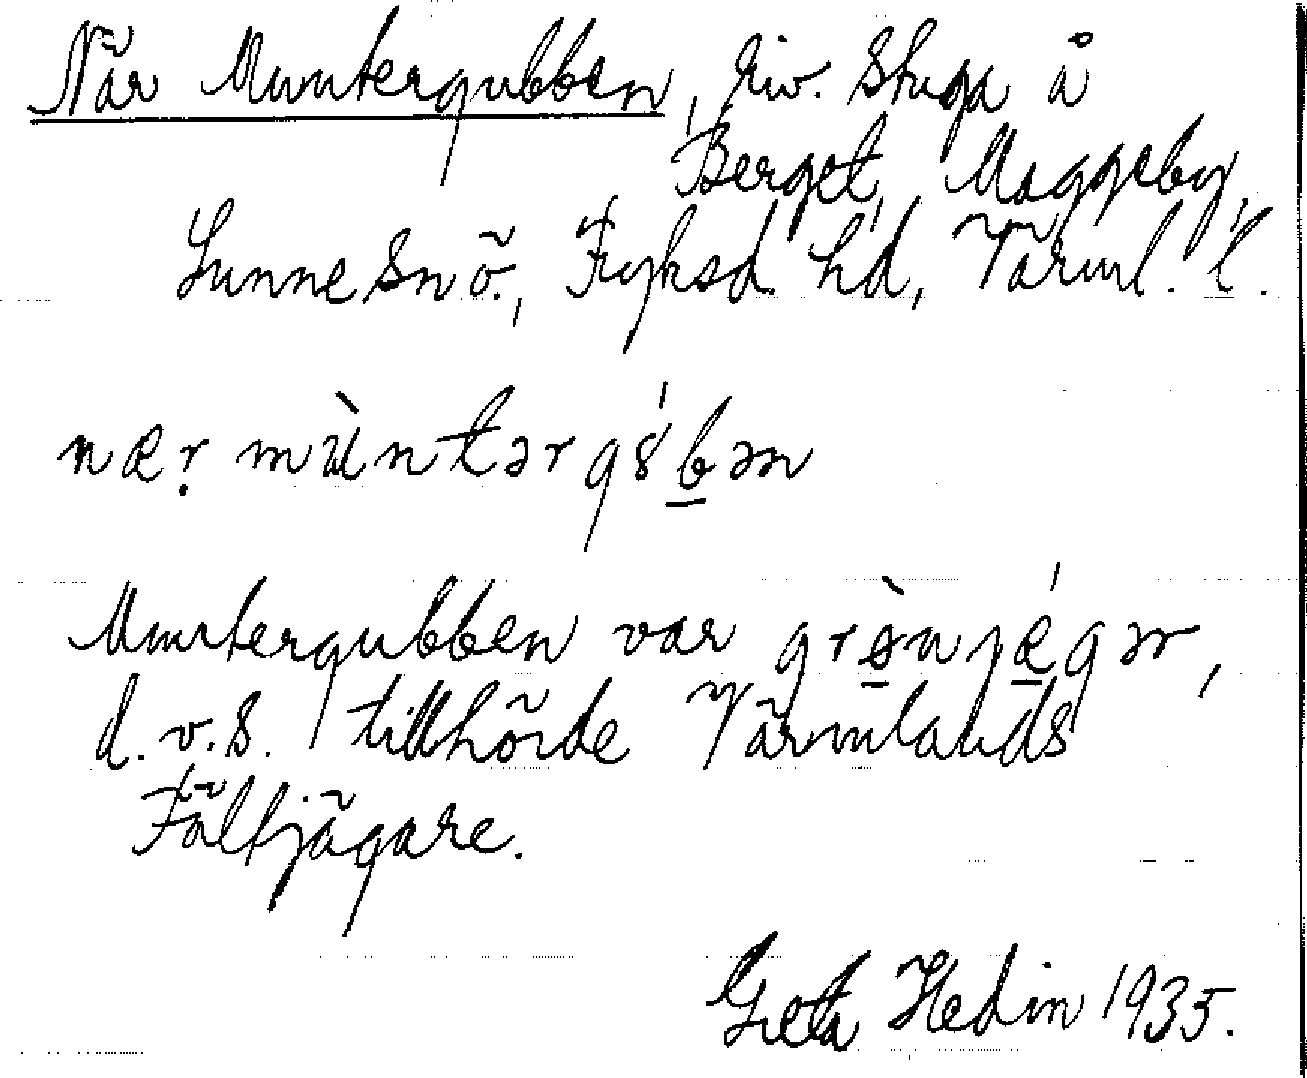 När Muntergubben, riv. stuga å
Berget, Maggeby,
Sunne sn ö., Fryksd. hd, Värml. l.
næṛ mùntərgɞ́bən
Muntergubben var grø̀njǽgər,
d.v.s. tillhörde Värmlands
Fältjägare.
Greta Hedin 1935.